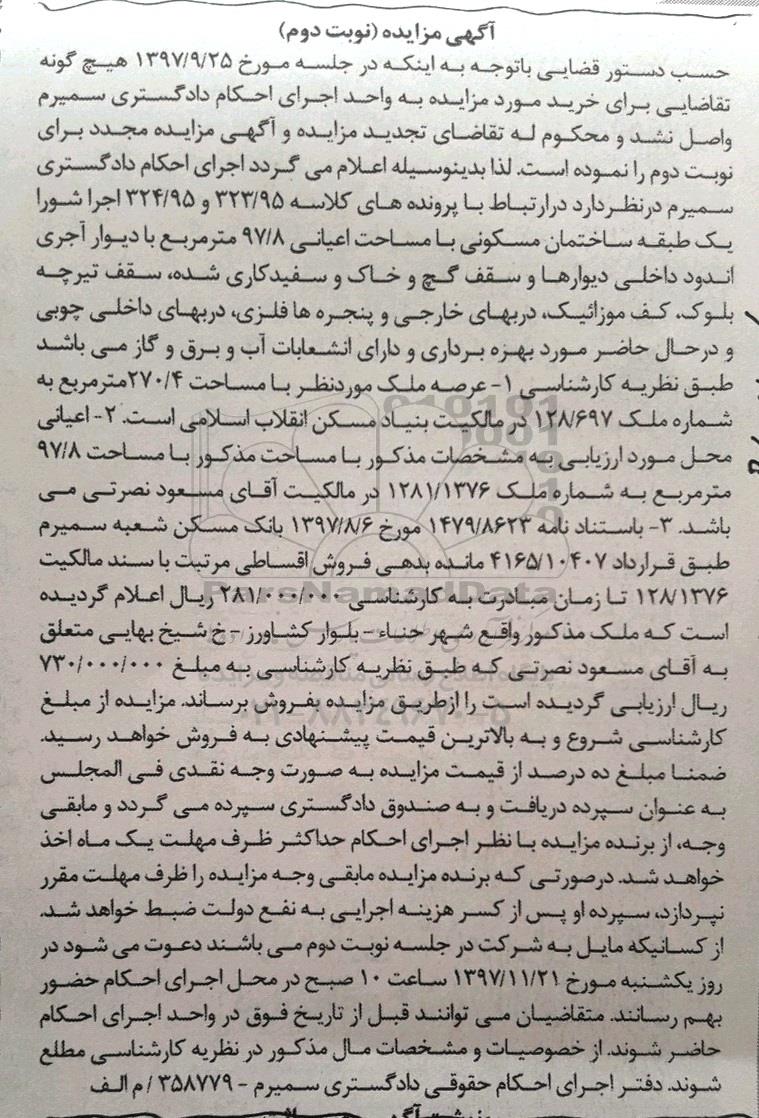 آگهی مزایده (نوبت دوم)
حسب دستور قضایی باتوجه به اینکه در جلسه مورخ ۱۳۹۷/۹/۲۵ هیچ گونه
تقاضایی برای خرید مورد مزایده به واحد اجرای احکام دادگستری سمیرم
واصل نشد و محکوم له تقاضای تجدید مزایده و آگهی مزایده مجدد برای
نوبت دوم را نموده است. لذا بدینوسیله اعلام می گردد اجرای احکام دادگستری
سمیرم درنظردارد درارتباط با پرونده های کلاسه ۳۲۳/۹۵ و ۳۲۴/۹۵ اجرا شورا
یک طبقه ساختمان مسکونی با مساحت اعیانی ۹۷/۸ مترمربع با دیوار آجری
اندود داخلی دیوارها و سقف گچ و خاک و سفیدکاری شده، سقف تیرچه
بلوک، کف موزائیک، دربهای خارجی و پنجره ها فلزی، دربهای داخلی چوبی
و درحال حاضر مورد بهره برداری و دارای انشعابات آب و برق و گاز می باشد
طبق نظریه کارشناسی ۱- عرصه ملک موردنظر با مساحت ۲۷۰/۴مترمربع به
شماره ملک ۱۲۸/۶۹۷ در مالکیت بنیاد مسکن انقلاب اسلامی است. ۲- اعیانی
محل مورد ارزیابی به مشخصات مذکور با مساحت مذکور با مساحت ۹۷/۸
مترمربع به شماره ملک ۱۲۸۱/۱۳۷۶ در مالکیت آقای مسعود نصرتی می
باشد. ۳- باستناد نامه ۱۴۷۹/۸۶۲۳ مورخ ۱۳۹۷/۸/۶ بانک مسکن شعبه سمیرم
طبق قرارداد ۴۱۶۵/۱۰۴۰۷ مانده بدهی فروش اقساطی مرتبت با سند مالکیت
۱۲۸/۱۳۷۶ تا زمان مبادرت به کارشناسی ۲۸۱/۰۰۰/۰۰۰ ریال اعلام گردیده
است که ملک مذکور واقع شهر حناء - بلوار کشاورز - خ شیخ بهایی متعلق
به آقای مسعود نصرتی که طبق نظریه کارشناسی به مبلغ ۷۳۰/۰۰۰/۰۰۰
ریال ارزیابی گردیده است را ازطریق مزایده بفروش برساند. مزایده از مبلغ
کارشناسی شروع و به بالاترین قیمت پیشنهادی به فروش خواهد رسید.
ضمنا مبلغ ده درصد از قیمت مزایده به صورت وجه نقدی فی المجلس
به عنوان سپرده دریافت و به صندوق دادگستری سپرده می گردد و مابقی
وجه، از برنده مزایده با نظر اجرای احکام حداکثر ظرف مهلت یک ماه اخذ
خواهد شد. درصورتی که برنده مزایده مابقی وجه مزایده را ظرف مهلت مقرر
نپردازد، سپرده او پس از کسر هزینه اجرایی به نفع دولت ضبط خواهد شد.
از کسانیکه مایل به شرکت در جلسه نوبت دوم می باشند دعوت می شود در
روز یکشنبه مورخ ۱۳۹۷/۱۱/۲۱ ساعت ۱۰ صبح در محل اجرای احکام حضور
بهم رسانند. متقاضیان می توانند قبل از تاریخ فوق در واحد اجرای احکام
حاضر شوند. از خصوصیات و مشخصات مال مذکور در نظریه کارشناسی مطلع
شوند. دفتر اجرای احکام حقوقی دادگستری سمیرم - ۳۵۸۷۷۹ / م الف